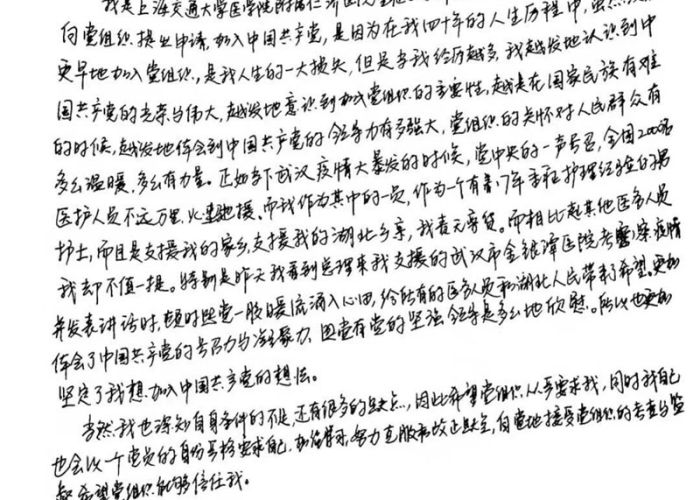 我是上海交通大学医学院附属仁济医院
向党组织提出申请,加入中国共产党,是因为在我四十年的人生历程中,虽然没
更早地加入党组织,是我人生的一大损失,但是当我经历越多,我越发地认识到中
国共产党的光荣与伟大,越发地意识到加入党组织的重要性,越是在国家民族有难
的时候,越发地体会到中国共产党的领导力有多强大,党组织的关怀对人民群众有
多么温暖、多么有力量。正如当下武汉疫情大暴发的时候,党中央的一声号召,全国2000名
医护人员不远万里,火速驰援。而我作为其中的一员,作为一个有着17年重症护理经验的男
护士,而且是支援我的家乡,支援我的湖北乡亲,我责无旁贷。而相比起其他医务人员
我却不值一提。特别是昨天我看到总理来我支援的武汉市金银潭医院考察疫情
并发表讲话时,顿时感觉一股暖流涌入心田,给所有的医务人员和湖北人民带来了希望。更加
体会了中国共产党的号召力与凝聚力,因党有党的坚强领导是多么地欣慰。所以也更加
坚定了我想加入中国共产党的想法。
当然我也深知自身条件的不足,还有很多的缺点,因此希望党组织从严要求我,同时我自己
也会以一个党员的身份严格要求自己,加强学习,努力克服和改正缺点,自觉地接受党组织的考查与监
督,希望党组织能够信任我。